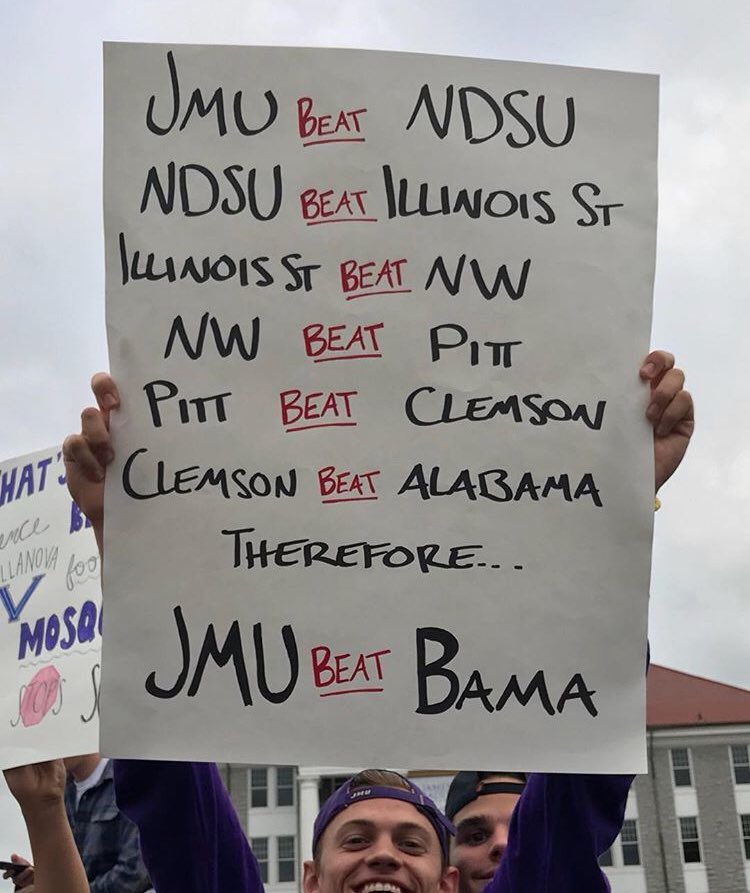 JMU BEAT NDSU
NDSU BEAT ILLINOIS ST
ILLINOIS ST BEAT NW
NW BEAT PITT
PITT BEAT CLEMSON
CLEMSON BEAT ALABAMA
THEREFORE...
JMU BEAT BAMA
JMU